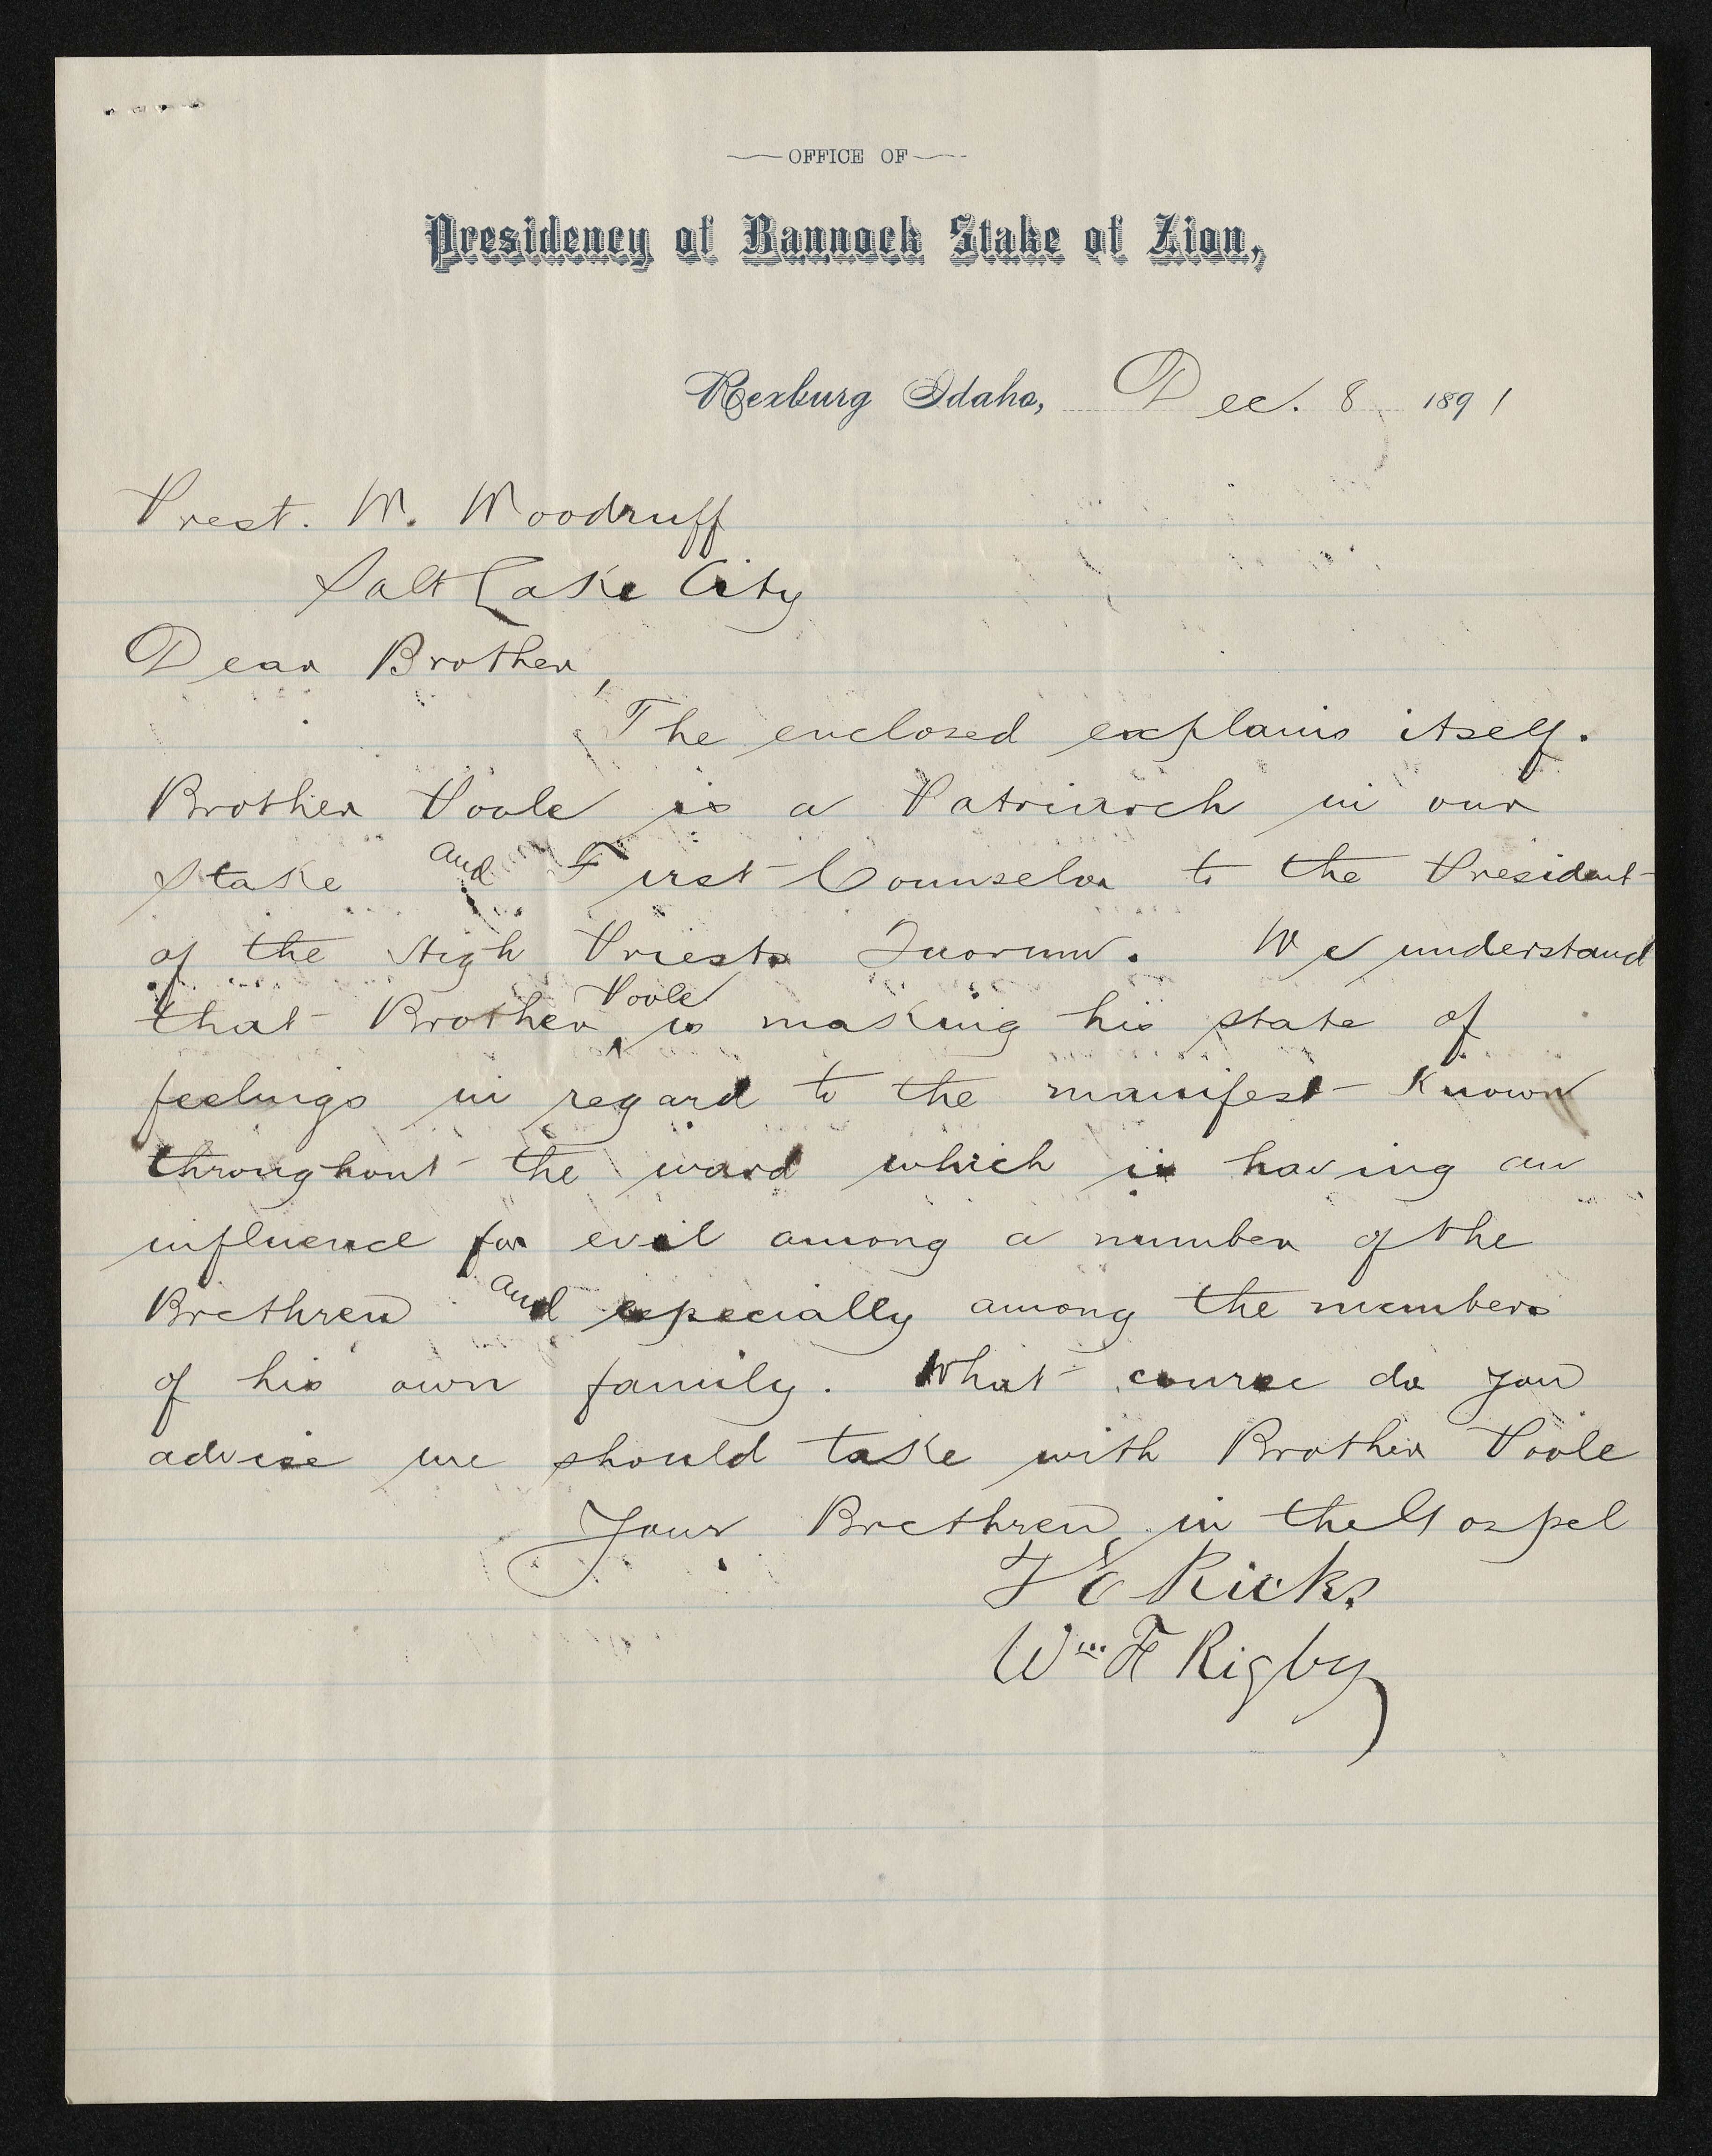 OFFICE OF
Presidency of Bannock Stake of Zion,
Rexburg Idaho, Dec. 8 1891
Prest. W. Woodruff
Salt Lake City
Dear Brother,
The enclosed explains itself.
Brother Poole is a Patriarch in our
Stake and First Counselor to the President
of the High Priests Quorum. We understand
that Brother Poole is making his state of
feelings in regard to the manifest known
throughout the ward which is having an
influence for evil among a number of the
Brethren and especially among the members
of his own family. What course do you
advise we should take with Brother Poole
Your Brethren in the Gospel
T E Ricks
Wm F Rigby